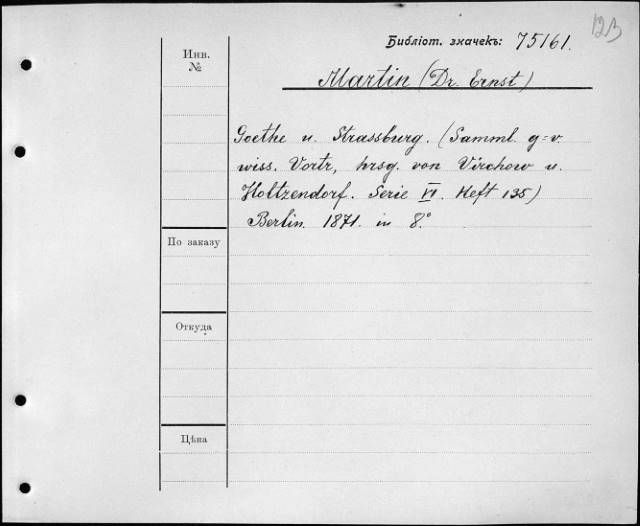 123
Библіот. значекъ: 75161.
Инв.
№
Martin (Dr. Ernst)
Goethe u. Strassburg. (Samml. g=v.
wiss. Vortr, hrsg. von Virchow u.
Holtzendorf. Serie VI. Heft 135)
Berlin. 1871. in 8°
По заказу
Откуда
Цѣна